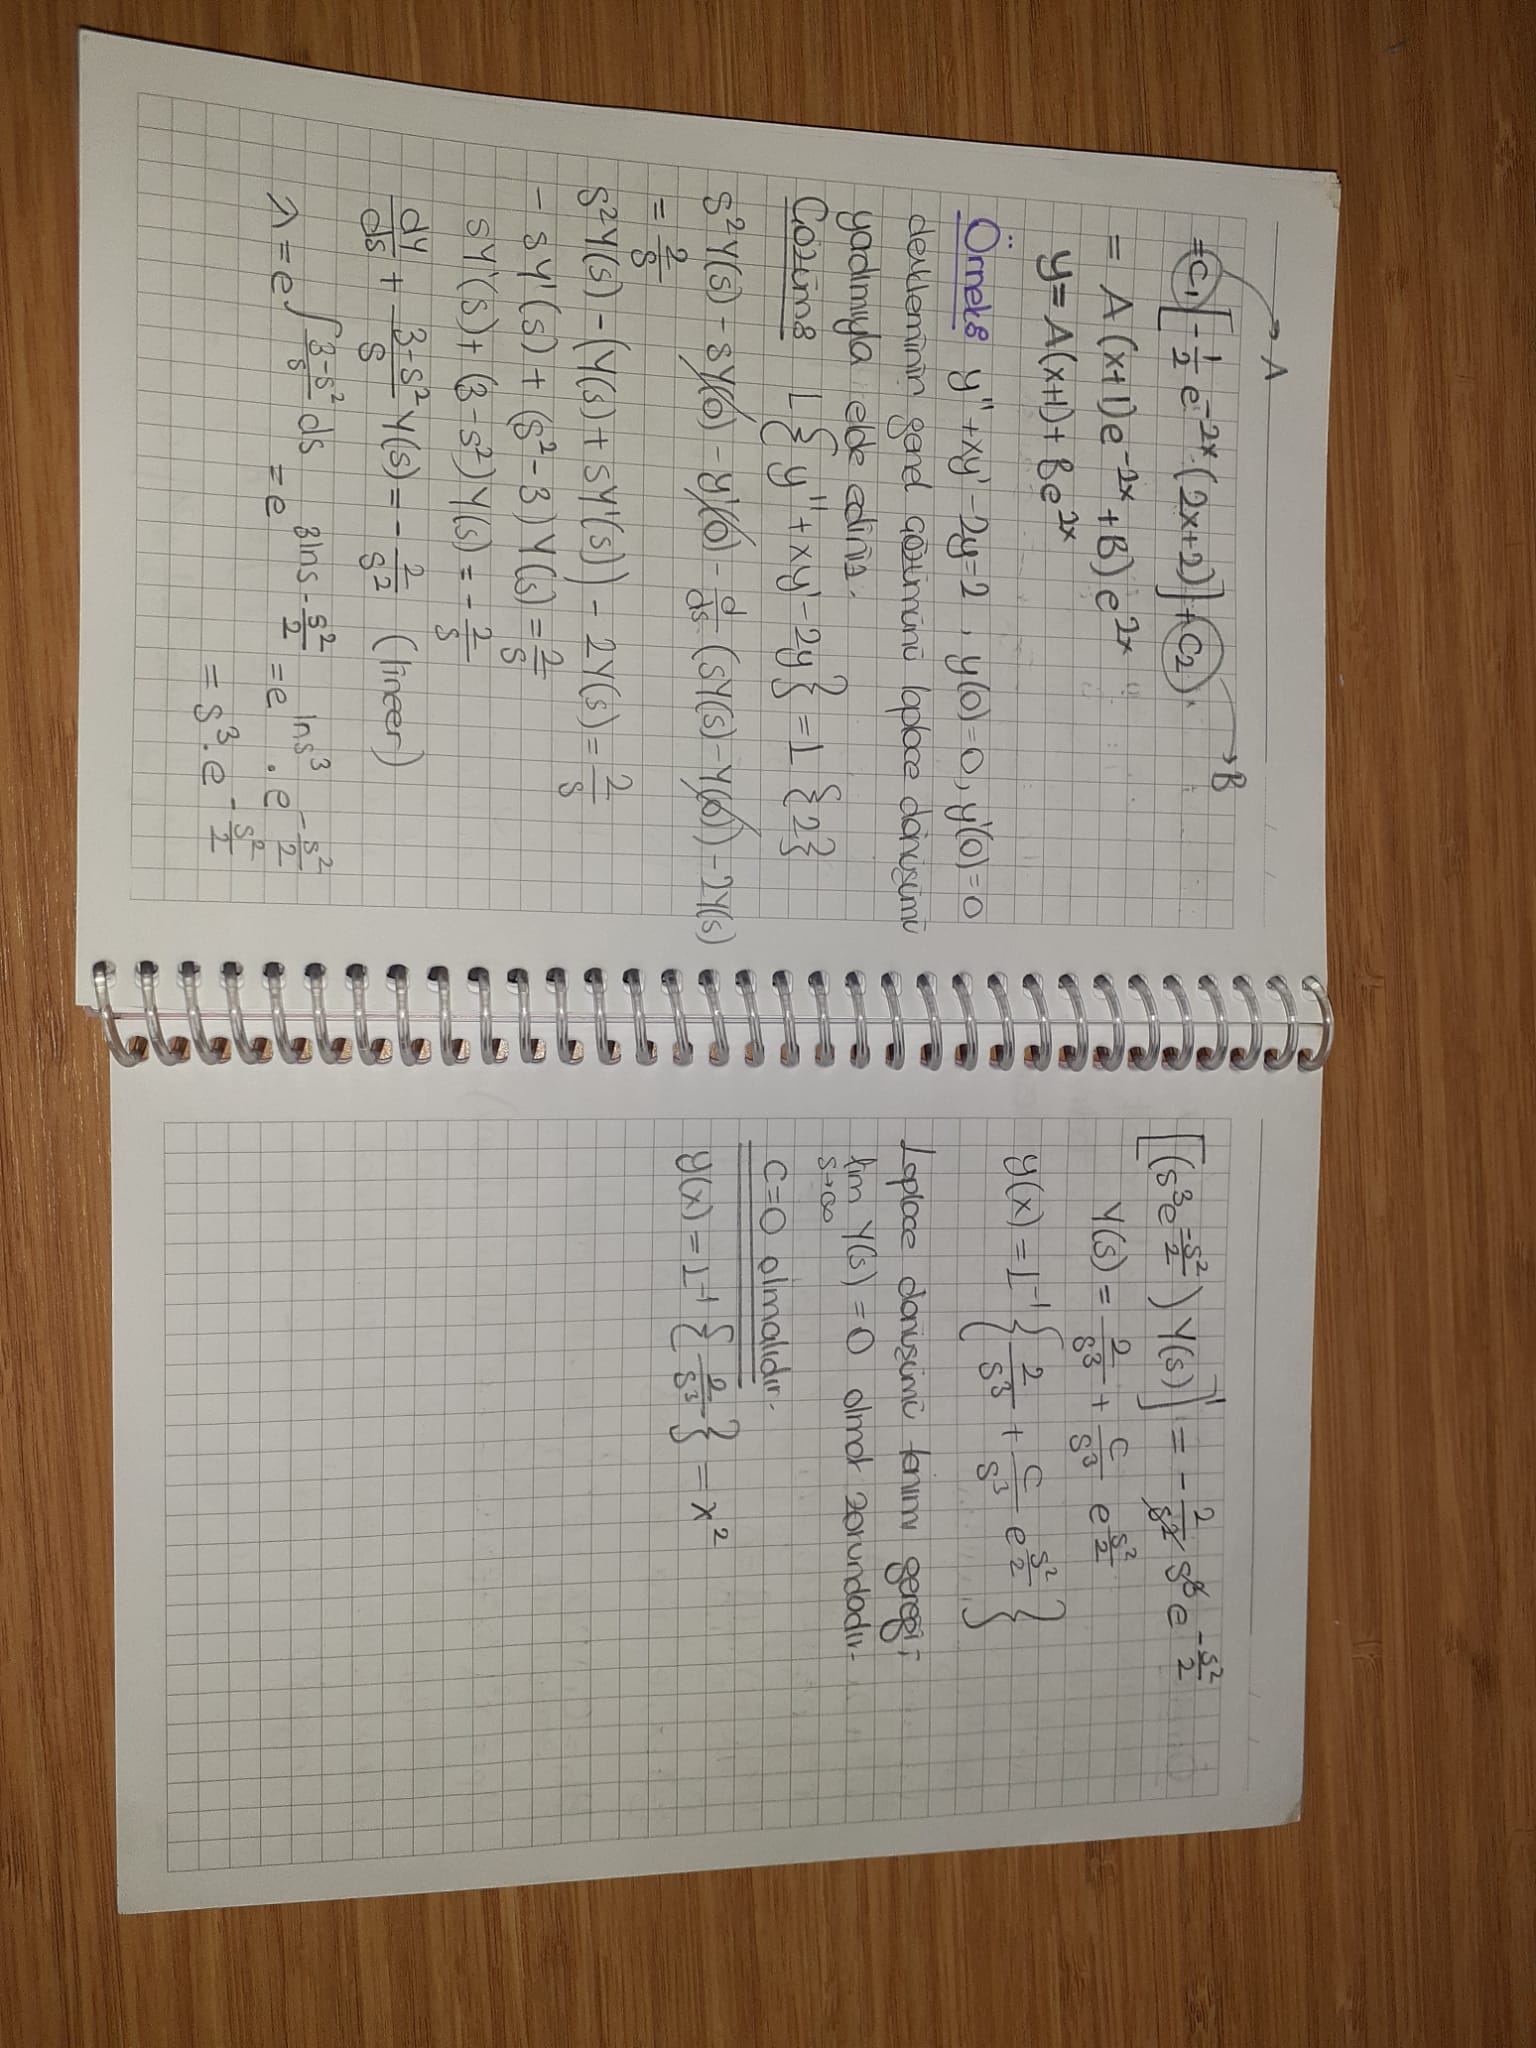 A
B
= C₁ [-1/2 e^(-2x) (2x+2)] + C₂
= A(x+1)e^(-2x) + B) e^(2x)
y = A(x+1) + Be^(2x)
Örnek: y'' + xy' - 2y = 2, y(0) = 0, y'(0) = 0
denkleminin genel çözümünü laplace dönüşümü
yardımıyla elde ediniz.
Çözüm: L{y'' + xy' - 2y} = L{2}
s²Y(s) - sY(0) - y'(0) - d/ds (sY(s) - Y(0)) - 2Y(s)
= 2/s
s²Y(s) - (Y(s) + sY'(s)) - 2Y(s) = 2/s
- sY'(s) + (s² - 3)Y(s) = 2/s
sY'(s) + (3 - s²)Y(s) = -2/s
dY/ds + (3-s²)/s Y(s) = -2/s² (lineer)
λ = e^(∫ (3-s²)/s ds) = e^(3lns - s²/2) = e^(lns³) . e^(-s²/2)
= s³ . e^(-s²/2)
[(s³e^(-s²/2)) Y(s)]' = -2/s² s³ e^(-s²/2)
Y(s) = 2/s³ + C/s³ e^(s²/2)
y(x) = L⁻¹ {2/s³ + C/s³ e^(s²/2)}
Laplace dönüşümü tanımı gereği;
lim Y(s) = 0 olmak zorundadır.
s→∞
C=0 olmalıdır.
y(x) = L⁻¹ {2/s³} = x²